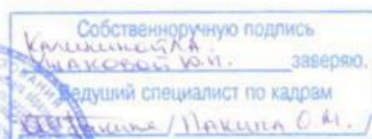 Собственноручную подпись
Калининой Л.А.
Ушаковой Ю.Н.
заверяю.
Ведущий специалист по кадрам
/ Пакина О.М. /